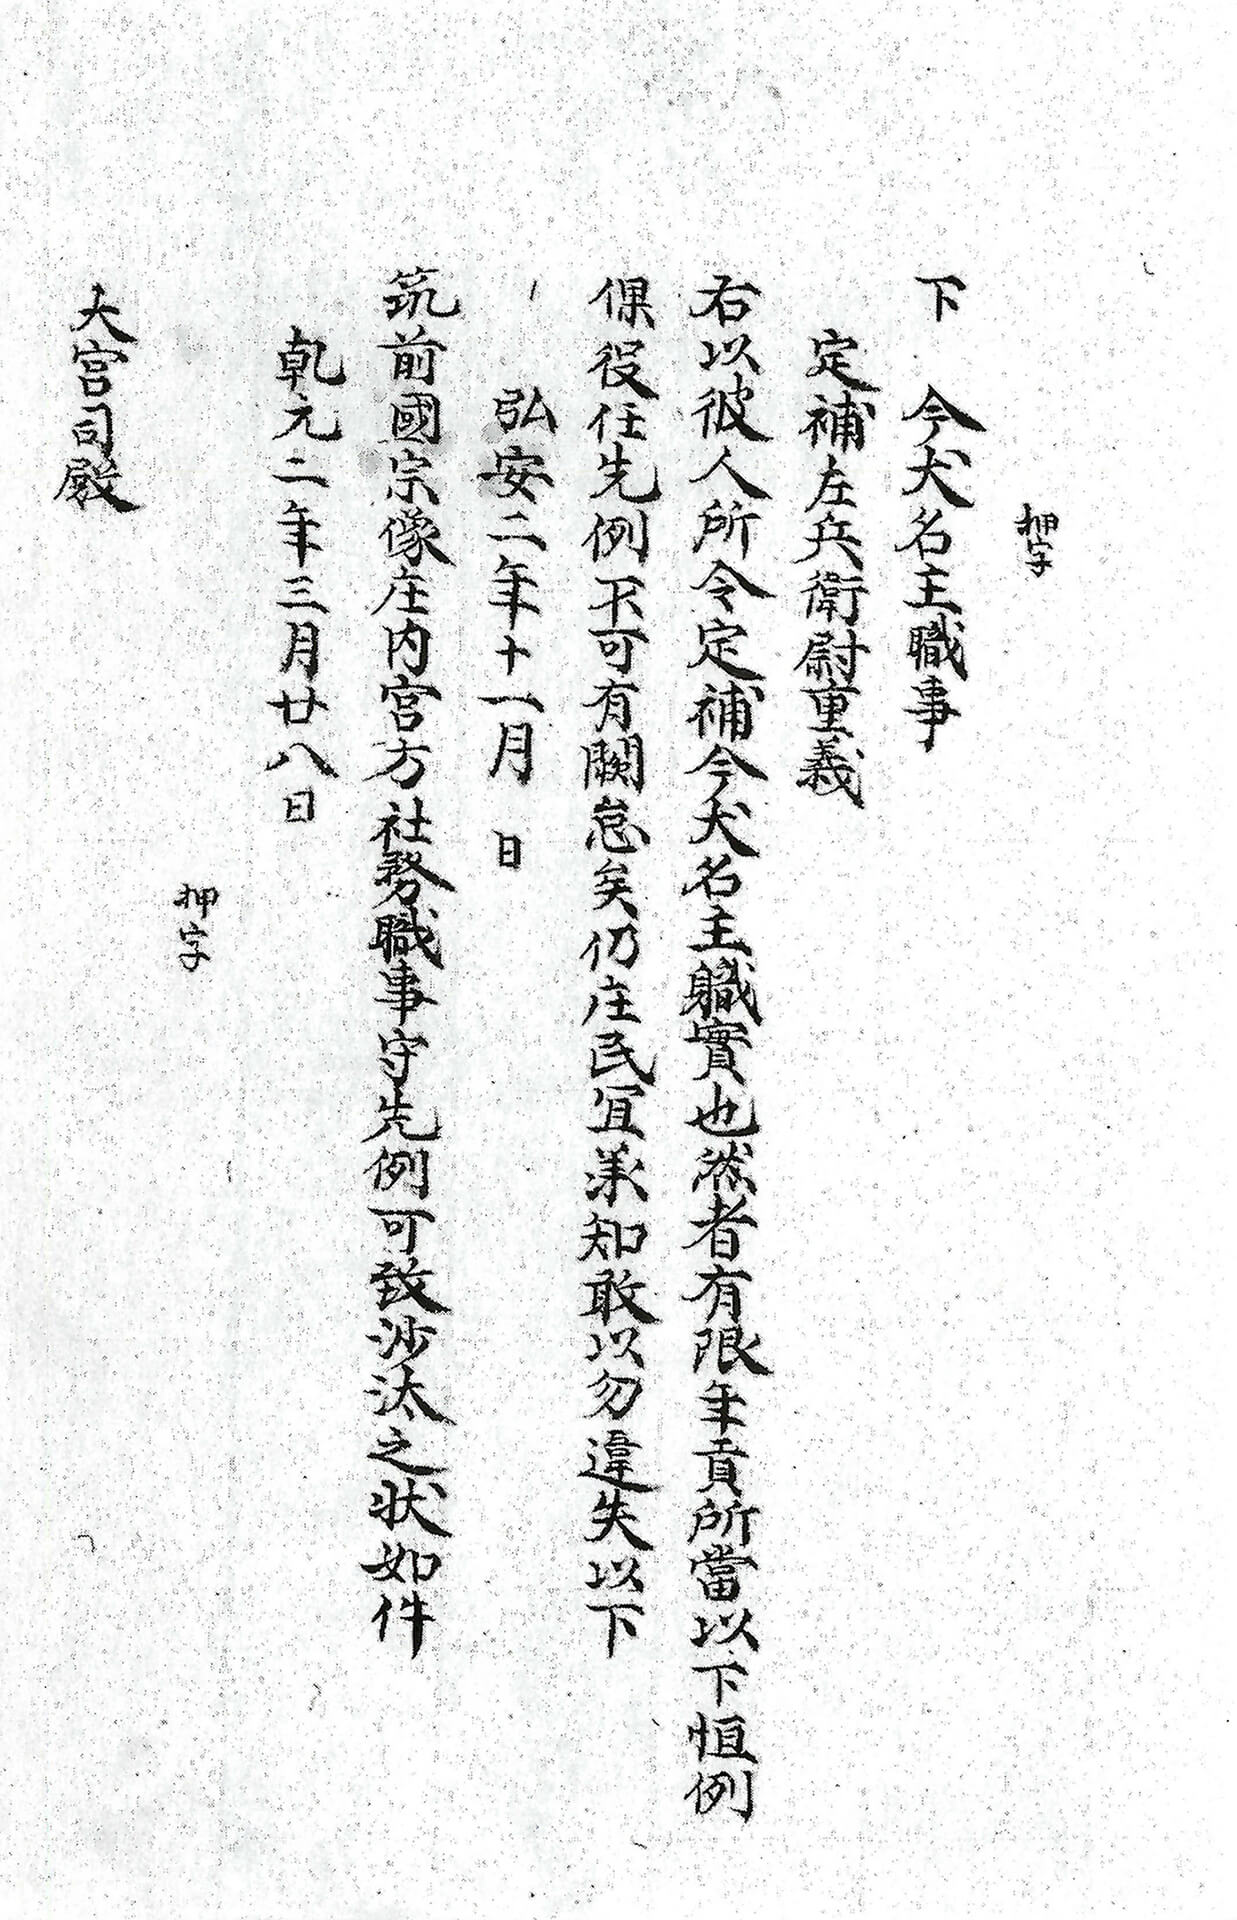 押字
下 今犬名主職事
定補左兵衛尉重義
右以彼人所令定補今犬名主職實也然者有限年貢所當以下恒例
倮役任先例不可有闕怠矣仍庄民宜承知敢以勿違失以下
弘安二年十一月 日
筑前國宗像庄内宮方社務職事守先例可致沙汰之状如件
乾元二年三月廿八日
押字
大宮司殿